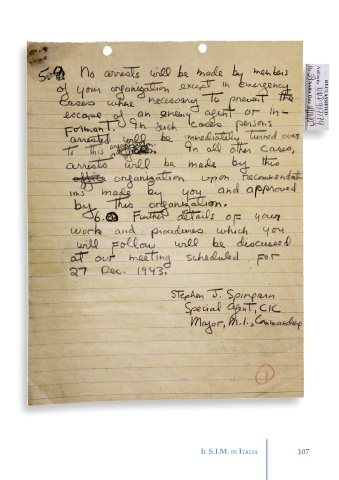 5. No arrests will be made by members
of your organization except in emergency
cases where necessary to prevent the
escape of an enemy agent or in-
formant. In such cases persons
arrested will be immediately turned over
to this organization. In all other cases,
arrests will be made by this
office organization upon recommendat
ions made by you and approved
by this organization.
6. Further details of your
work and procedures which you
will follow will be discussed
at our meeting scheduled for
27 Dec. 1943.
Stephen J. Spingarn
Special Agent, CIC
Major, M.I., Commanding
DECLASSIFIED
Authority
1
IL S.I.M. IN ITALIA
107